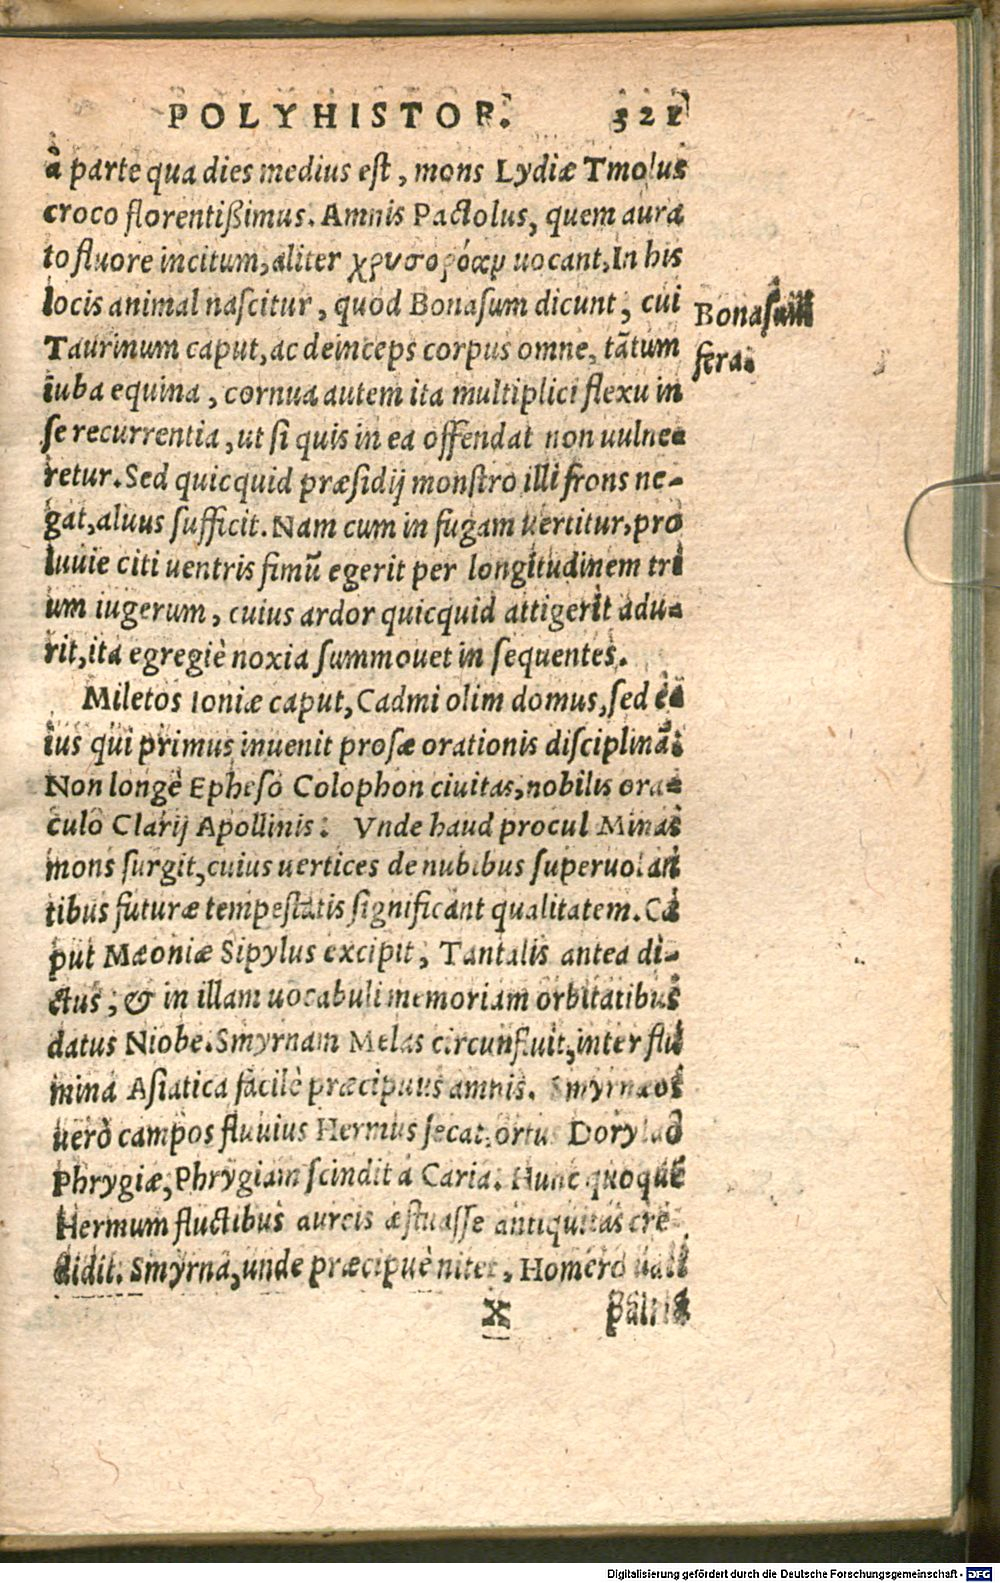 POLYHISTOR. 321
à parte qua dies medius est, mons Lydiæ Tmolus
croco florentißimus. Amnis Pactolus, quem aura
to fluore incitum, aliter χρυσορόαν uocant. In his
locis animal nascitur, quod Bonasum dicunt, cui
Bonasus
fera.
Taurinum caput, ac deinceps corpus omne, tãtum
iuba equina, cornua autem ita multiplici flexu in
se recurrentia, ut si quis in ea offendat non uulne-
retur. Sed quicquid præsidij monstro illi frons ne-
gat, aluus sufficit. Nam cum in fugam uertitur, pro
luuie citi uentris fimũ egerit per longitudinem tri
um iugerum, cuius ardor quicquid attigerit adu-
rit, ita egregiè noxia summouet in sequentes.
Miletos Ioniæ caput, Cadmi olim domus, sed e-
ius qui primus inuenit prosæ orationis disciplinã.
Non longè Epheso Colophon ciuitas, nobilis ora-
culo Clarij Apollinis. Vnde haud procul Mimas
mons surgit, cuius uertices de nubibus superuolan
tibus futuræ tempestatis significant qualitatem. Ca
put Mæoniæ Sipylus excipit, Tantalis antea di-
ctus, & in illam uocabuli memoriam orbitatibus
datus Niobe. Smyrnam Melas circunfluit, inter flu
mina Asiatica facilè præcipuus amnis. Smyrnæos
uerò campos fluuius Hermus secat, ortus Dorylao
Phrygiæ, Phrygiam scindit a Caria. Hunc quoque
Hermum fluctibus aureis æstuasse antiquitas cre-
didit. Smyrna, unde præcipuè nitet, Homero uati
X patria
Digitalisierung gefördert durch die Deutsche Forschungsgemeinschaft - DFG